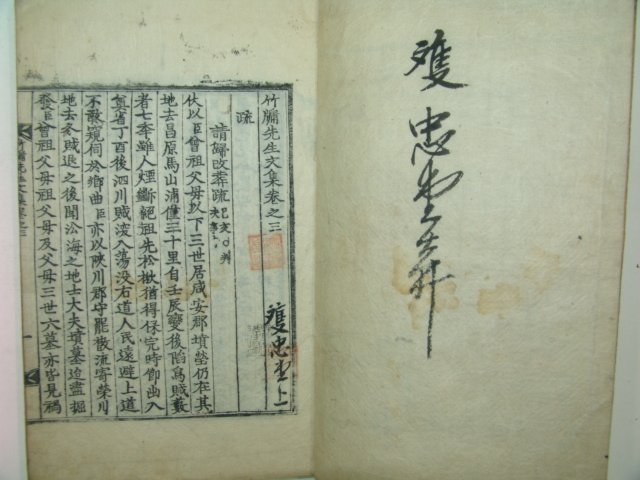 雙忠堂上𢍁
竹牖先生文集卷之三
雙忠堂上
疏
請歸改葬疏
伏以臣曾祖父母以下三世居咸安郡墳塋仍在其
地去昌原馬山浦僅三十里自壬辰變後陷爲賊藪
者七年雖人煙斷絕祖先松楸猶得保完時御曲入
奠省丁酉後泗川賊凌入蕩沒右道人民遠避上道
不敢窺伺於鄉曲臣亦以陜川郡守罷散流寄榮川
地去冬賊退之後聞沿海之地士大夫墳墓迨盡掘
發臣曾祖父母祖父母及父母三世六墓亦皆見禍
竹牖先生文集卷之三
一